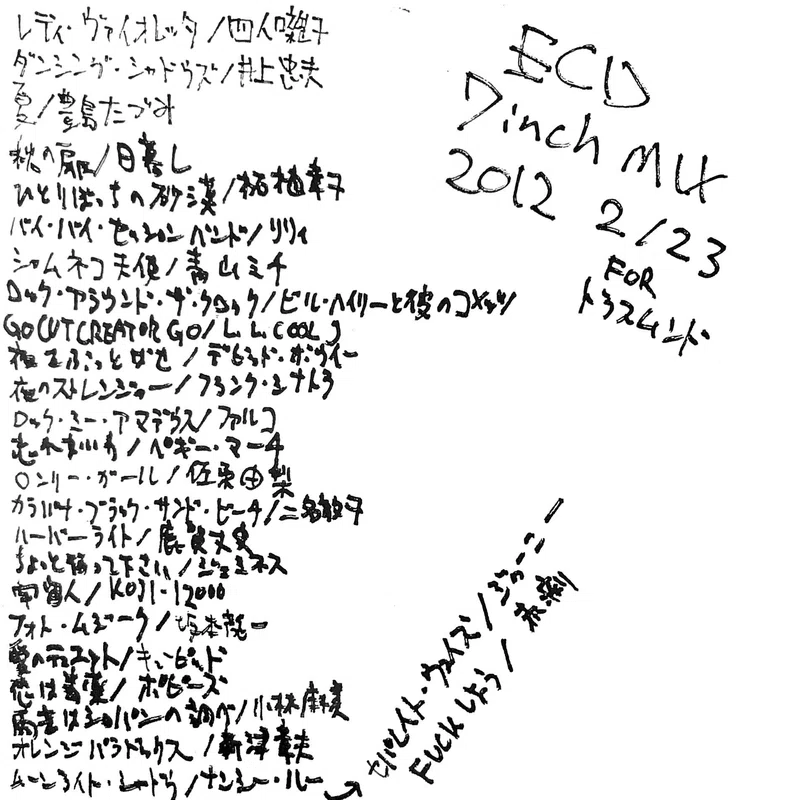 レディ・ヴァイオレッタ/四人囃子
ダンシング・シャドウズ/井上忠夫
夏/豊島たづみ
秋の扇/日暮し
ひとりぼっちの砂漠/柘植章子
バイ・バイ・セッションバンド/リリィ
シャムネコ天使/青山ミチ
ロック・アラウンド・ザ・クロック/ビル・ヘイリーと彼のコメッツ
GO CUT CREATOR GO/L.L. COOL J
夜をぶっとばせ/デビッド・ボウイー
夜のストレンジャー/フランク・シナトラ
ロック・ミー・アマデウス/ファルコ
忘れないわ/ペギー・マーチ
ロンリー・ガール/佐東由梨
カラパナ・ブラック・サンド・ビーチ/二名敦子
ハーバーライト/
ちょっと待って下さい/ジェミネス
宇宙人/KOJI-12000
フォト・ムジーク/坂本龍一
愛のデュエット/キューピッド
恋は麻薬/ポピーズ
雨音はショパンの調べ/小林麻美
オレンジパラドックス/新津章夫
ムーンライト・シャドウ/ナンシー・ルー
セパレイト・ウェイズ/ジャーニー
FUCKしよう/表割
ECD
7inch MIX
2012 2/23
FOR
トラスムンド